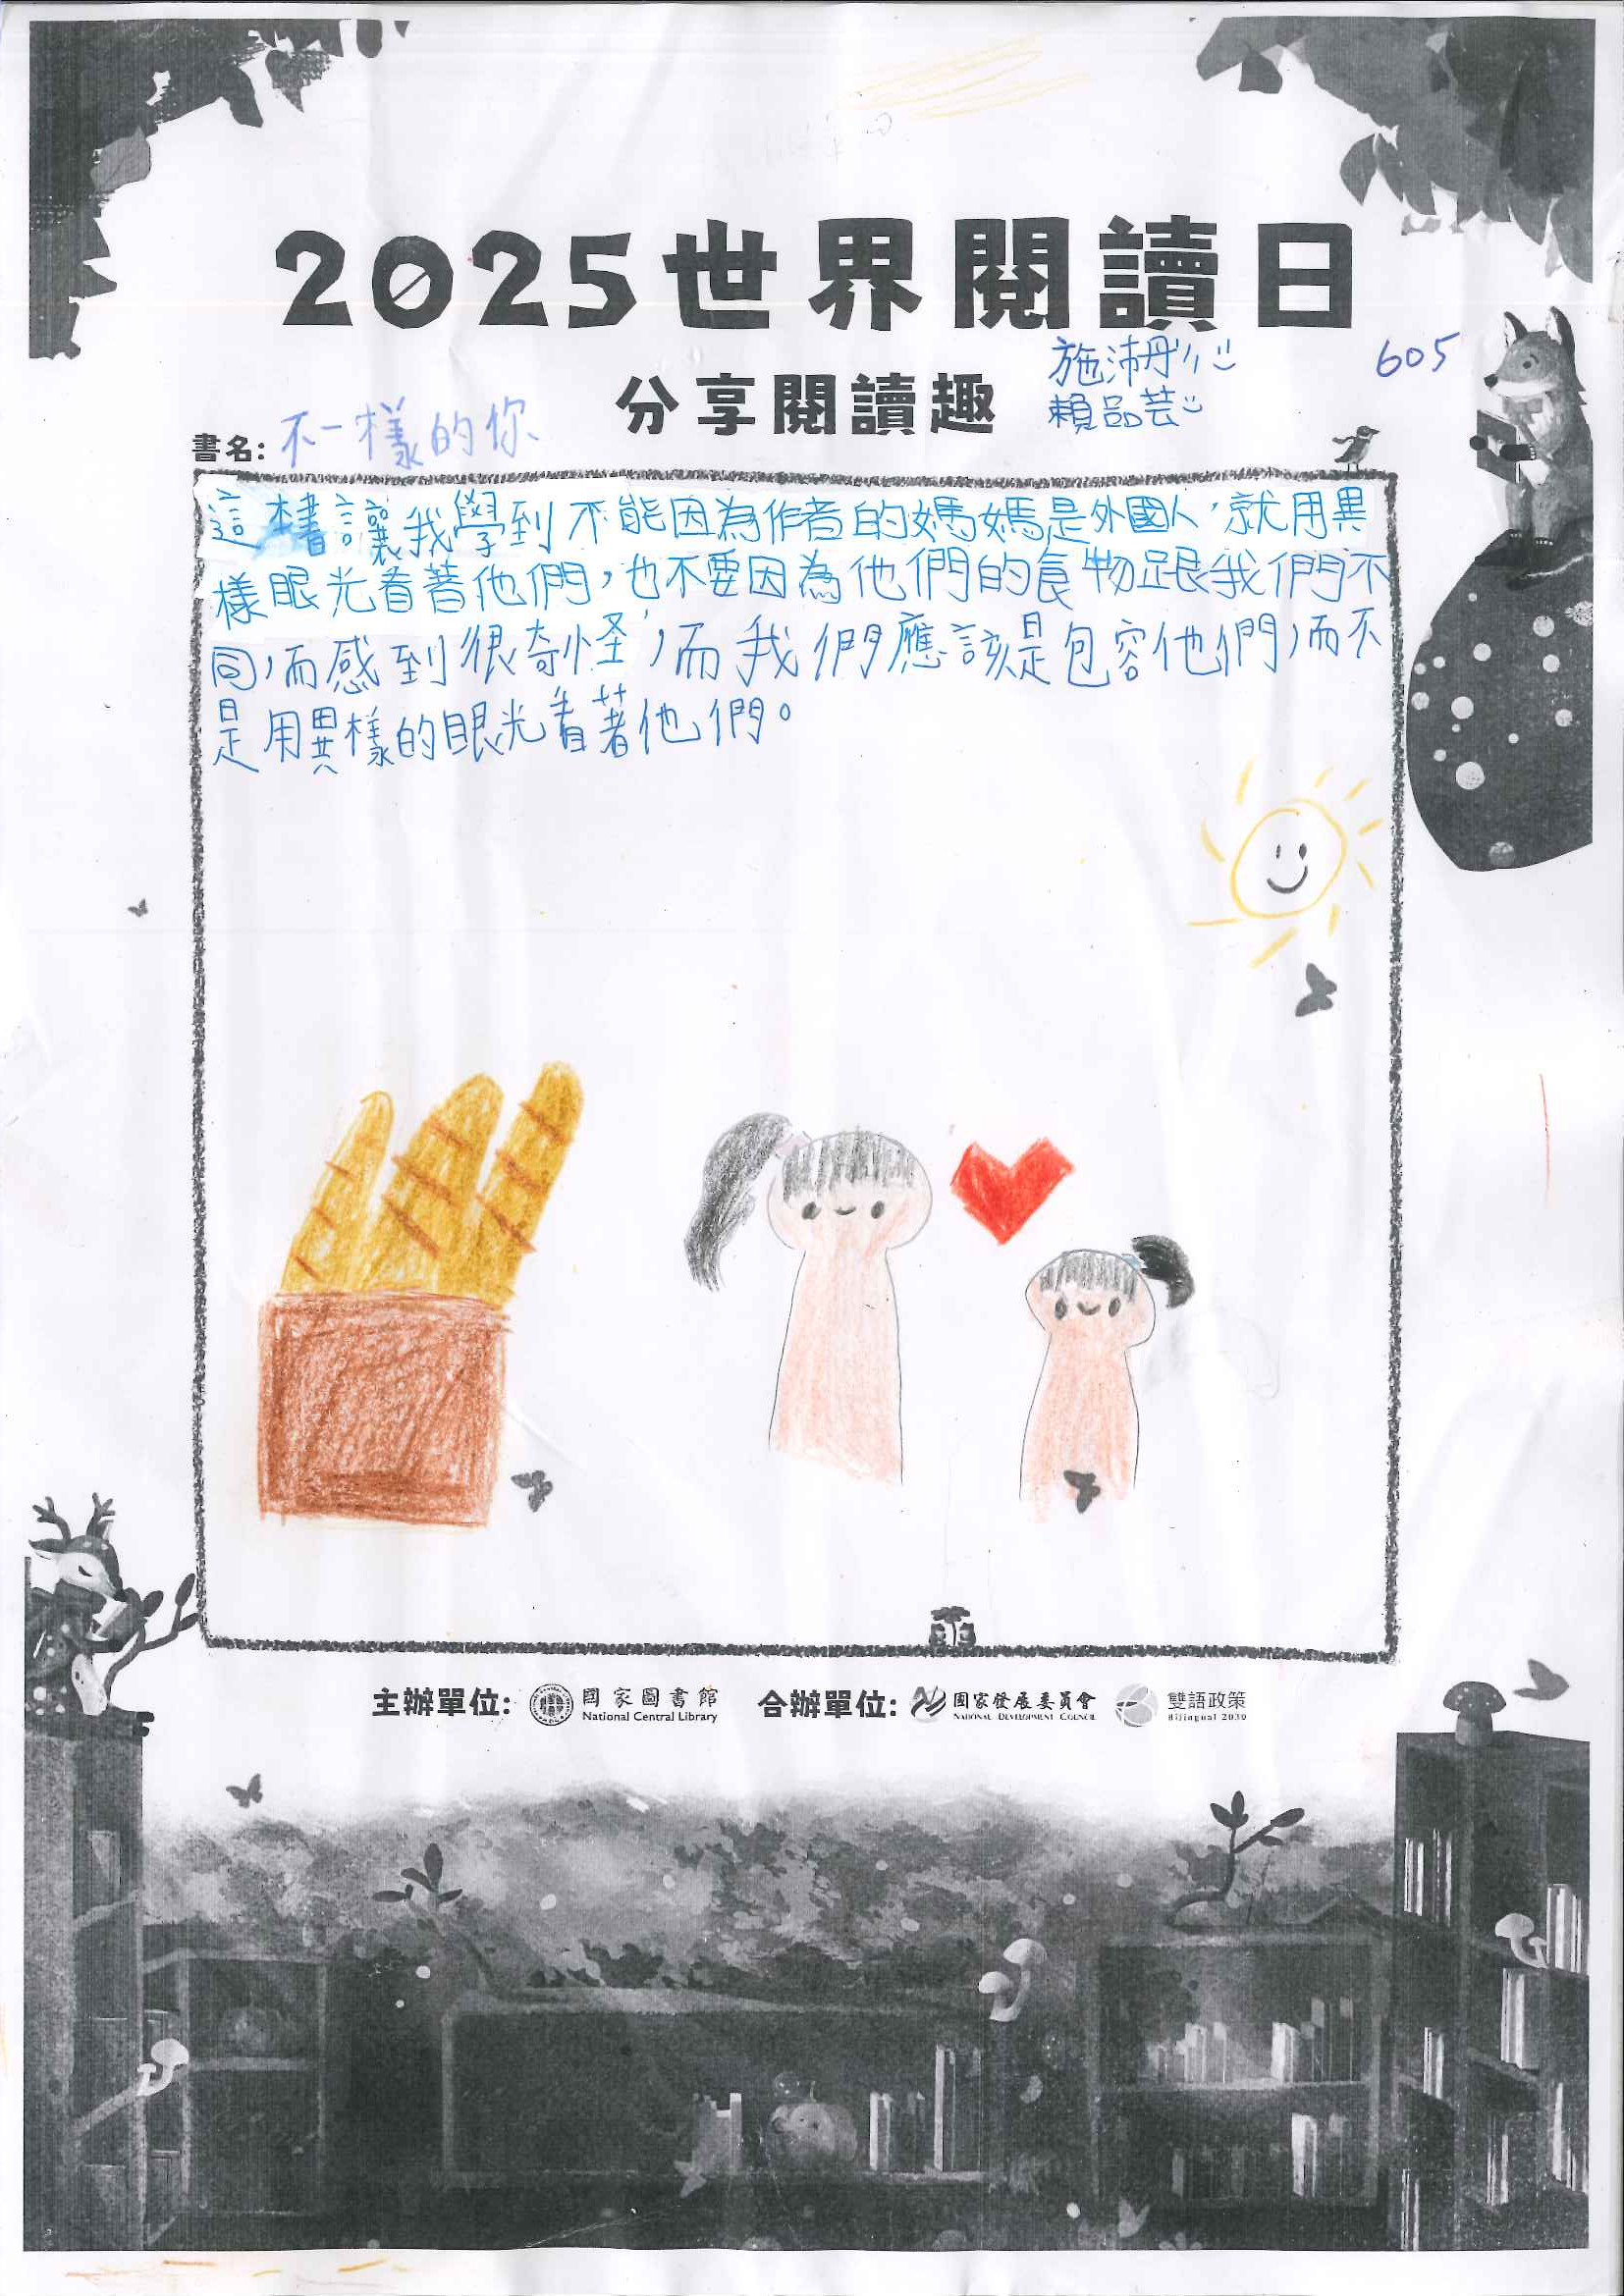 2025世界閱讀日
分享閱讀趣
施沛彤
605
賴品芸
書名: 不一樣的你
這本書讓我學到不能因為作者的媽媽是外國人,就用異
樣眼光看著他們,也不要因為他們的食物跟我們不
同,而感到很奇怪,而我們應該是包容他們,而不
是用異樣的眼光看著他們。
主辦單位: 國家圖書館 合辦單位: 國家發展委員會 雙語政策
National Central Library NATIONAL DEVELOPMENT COUNCIL Bilingual 2030